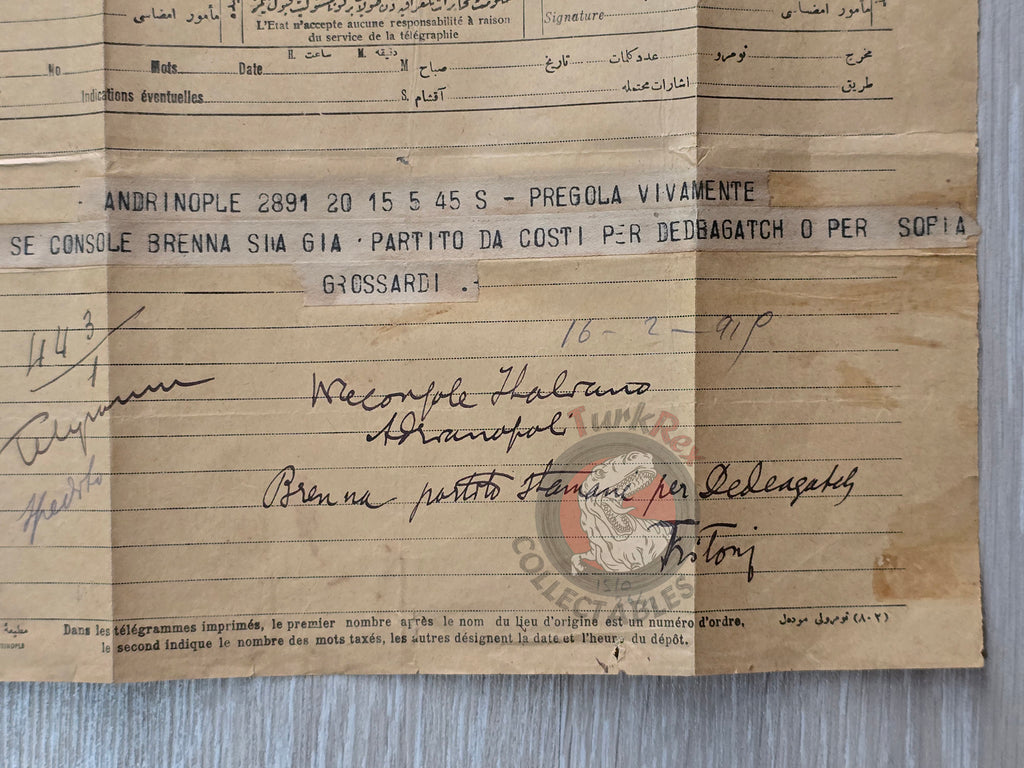 مأمور امضاسى
L'Etat n'accepte aucune responsabilité à raison
du service de la télégraphie
Signature
مأمور امضاسى
No Mots Date H. ساعت M. دقيقه M صباح تاريخ عدد كلمات نومرو مخرج
Indications éventuelles S. آقشام اشارات محتمله طريق
ANDRINOPLE 2891 20 15 5 45 S - PREGOLA VIVAMENTE
SE CONSOLE BRENNA SIIA GIA PARTITO DA COSTI PER DEDBAGATCH O PER SOFIA
GROSSARDI .-
443/1
16 - 2 - 919
Telegramma
spedito
Viceconsole Italiano
Adrianopoli
Brenna partito stamane per Dedeagatch
TurkRex
COLLECTABLES
Dans les télégrammes imprimés, le premier nombre après le nom du lieu d'origine est un numéro d'ordre,
le second indique le nombre des mots taxés, les autres désignent la date et l'heure du dépôt.
(٨٠٢) نومرولى مودەل